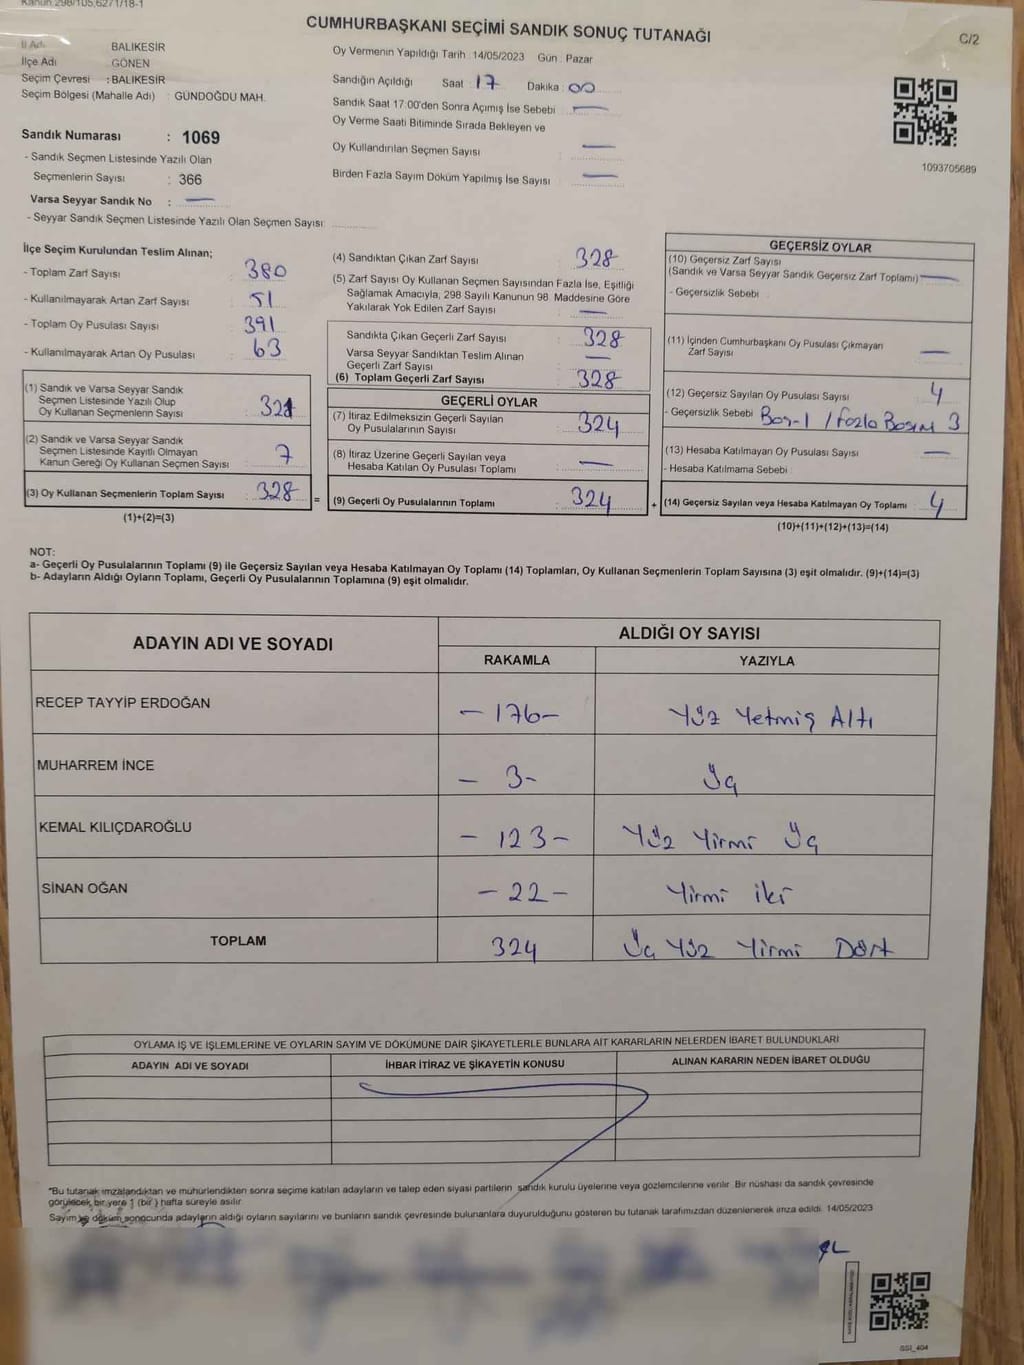 CUMHURBAŞKANI SEÇİMİ SANDIK SONUÇ TUTANAĞI
C/2
İl Adı BALIKESİR
İlçe Adı GÖNEN
Seçim Çevresi : BALIKESİR
Seçim Bölgesi (Mahalle Adı) : GÜNDOĞDU MAH.
Sandık Numarası : 1069
- Sandık Seçmen Listesinde Yazılı Olan
Seçmenlerin Sayısı : 366
Varsa Seyyar Sandık No : —
- Seyyar Sandık Seçmen Listesinde Yazılı Olan Seçmen Sayısı:
Oy Vermenin Yapıldığı Tarih : 14/05/2023 Gün : Pazar
Sandığın Açıldığı Saat : 17 Dakika : 00
Sandık Saat 17:00'den Sonra Açımış İse Sebebi : —
Oy Verme Saati Bitiminde Sırada Bekleyen ve
Oy Kullandırılan Seçmen Sayısı : —
Birden Fazla Sayım Döküm Yapılmış İse Sayısı : —
1093705689
İlçe Seçim Kurulundan Teslim Alınan;
- Toplam Zarf Sayısı : 380
- Kullanılmayarak Artan Zarf Sayısı : 51
- Toplam Oy Pusulası Sayısı : 391
- Kullanılmayarak Artan Oy Pusulası : 63
(1) Sandık ve Varsa Seyyar Sandık
Seçmen Listesinde Yazılı Olup
Oy Kullanan Seçmenlerin Sayısı : 321
(2) Sandık ve Varsa Seyyar Sandık
Seçmen Listesinde Kayıtlı Olmayan
Kanun Gereği Oy Kullanan Seçmen Sayısı : 7
(3) Oy Kullanan Seçmenlerin Toplam Sayısı : 328
(1)+(2)=(3)
=
(4) Sandıktan Çıkan Zarf Sayısı : 328
(5) Zarf Sayısı Oy Kullanan Seçmen Sayısından Fazla İse, Eşitliği
Sağlamak Amacıyla, 298 Sayılı Kanunun 98. Maddesine Göre
Yakılarak Yok Edilen Zarf Sayısı : —
Sandıkta Çıkan Geçerli Zarf Sayısı : 328
Varsa Seyyar Sandıktan Teslim Alınan
Geçerli Zarf Sayısı : —
(6) Toplam Geçerli Zarf Sayısı : 328
GEÇERLİ OYLAR
(7) İtiraz Edilmeksizin Geçerli Sayılan
Oy Pusulalarının Sayısı : 324
(8) İtiraz Üzerine Geçerli Sayılan veya
Hesaba Katılan Oy Pusulası Toplamı : —
(9) Geçerli Oy Pusulalarının Toplamı : 324
+
GEÇERSİZ OYLAR
(10) Geçersiz Zarf Sayısı
(Sandık ve Varsa Seyyar Sandık Geçersiz Zarf Toplamı) : —
- Geçersizlik Sebebi :
(11) İçinden Cumhurbaşkanı Oy Pusulası Çıkmayan
Zarf Sayısı : —
(12) Geçersiz Sayılan Oy Pusulası Sayısı : 4
- Geçersizlik Sebebi : Boş-1 / Fazla Basım 3
(13) Hesaba Katılmayan Oy Pusulası Sayısı : —
- Hesaba Katılmama Sebebi :
(14) Geçersiz Sayılan veya Hesaba Katılmayan Oy Toplamı : 4
(10)+(11)+(12)+(13)=(14)
NOT:
a- Geçerli Oy Pusulalarının Toplamı (9) ile Geçersiz Sayılan veya Hesaba Katılmayan Oy Toplamı (14) Toplamları, Oy Kullanan Seçmenlerin Toplam Sayısına (3) eşit olmalıdır. (9)+(14)=(3)
b- Adayların Aldığı Oyların Toplamı, Geçerli Oy Pusulalarının Toplamına (9) eşit olmalıdır.
ADAYIN ADI VE SOYADI
ALDIĞI OY SAYISI
RAKAMLA YAZIYLA
RECEP TAYYİP ERDOĞAN -176- Yüz Yetmiş Altı
MUHARREM İNCE - 3- Üç
KEMAL KILIÇDAROĞLU - 123- Yüz Yirmi Üç
SİNAN OĞAN -22- Yirmi iki
TOPLAM 324 Üç Yüz Yirmi Dört
OYLAMA İŞ VE İŞLEMLERİNE VE OYLARIN SAYIM VE DÖKÜMÜNE DAİR ŞİKAYETLERLE BUNLARA AİT KARARLARIN NELERDEN İBARET BULUNDUKLARI
ADAYIN ADI VE SOYADI İHBAR İTİRAZ VE ŞİKAYETİN KONUSU ALINAN KARARIN NEDEN İBARET OLDUĞU
*Bu tutanak imzalandıktan ve mühürlendikten sonra seçime katılan adayların ve talep eden siyasi partilerin sandık kurulu üyelerine veya gözlemcilerine verilir. Bir nüshası da sandık çevresinde
görülecek bir yere 1 (bir) hafta süreyle asılır.
Sayım ve döküm sonocunda adayların aldığı oyların sayılarını ve bunların sandık çevresinde bulunanlara duyurulduğunu gösteren bu tutanak tarafımızdan düzenlenerek imza edildi. 14/05/2023
GSI_404